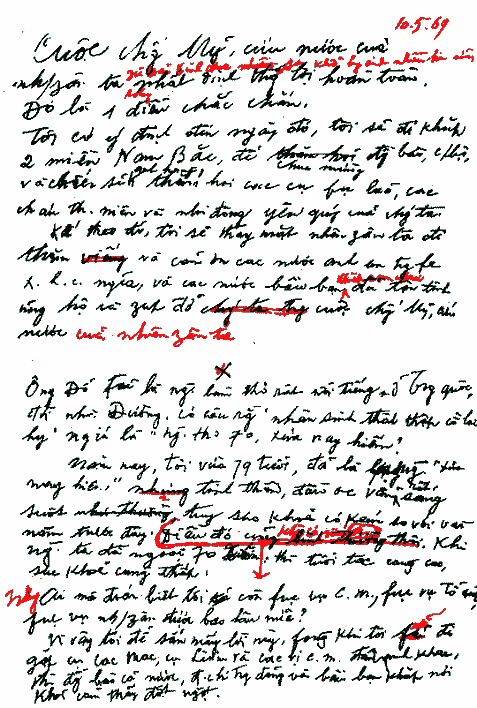 10.5.69
Cuộc chống Mỹ, cứu nước của
nh/zân ta
phải
nhất định thắng lợi hoàn toàn.
Đó là 1 điều chắc chắn.
Tôi có ý định đến ngày đó, tôi sẽ đi khắp
2 miền Nam Bắc, để
chúc mừng
đồng bào,
và
thăm hỏi các cụ fụ lão, các
cháu th. niên và nhi đồng yêu quý của chúng ta.
Kế theo đó, tôi sẽ thay mặt nhân zân ta đi
thăm và cảm ơn các nước anh em trong fe
x.h.c. nghĩa, và các nước bầu bạn
đã tận tình
ủng hộ và zúp đỡ cuộc chống Mỹ, cứu
nước của nhân zân ta
x
Ông Đỗ Fủ là người làm thơ rất nổi tiếng ở Trung quốc,
đời nhà Đường. Có câu rằng "nhân sinh thất thập cổ lai
hy" nghĩa là "Người thọ 70, xưa nay hiếm".
Năm nay, tôi vừa 79 tuổi, đã là "xưa
nay hiếm" tinh thần, đầu óc vẫn sáng
suốt tuy sức khoẻ có kém so với vài
năm trước đây. Điều đó
Khi
người ta đã ngoài 70 thì tuổi tác càng cao,
sức khoẻ càng thấp.
Ai mà đoán biết tôi còn fục vụ c.m., fục vụ Tổ quốc,
fục vụ nh/zân được bao lâu nữa?
Vì vậy tôi để sẵn mấy lời này, fòng khi tôi đi
gặp cụ Các Mác, cụ Lênin và các vị c.m. đàn anh khác,
thì đồng bào cả nước, đồng chí trong đảng và bầu bạn khắp nơi
khỏi cảm thấy đột ngột.